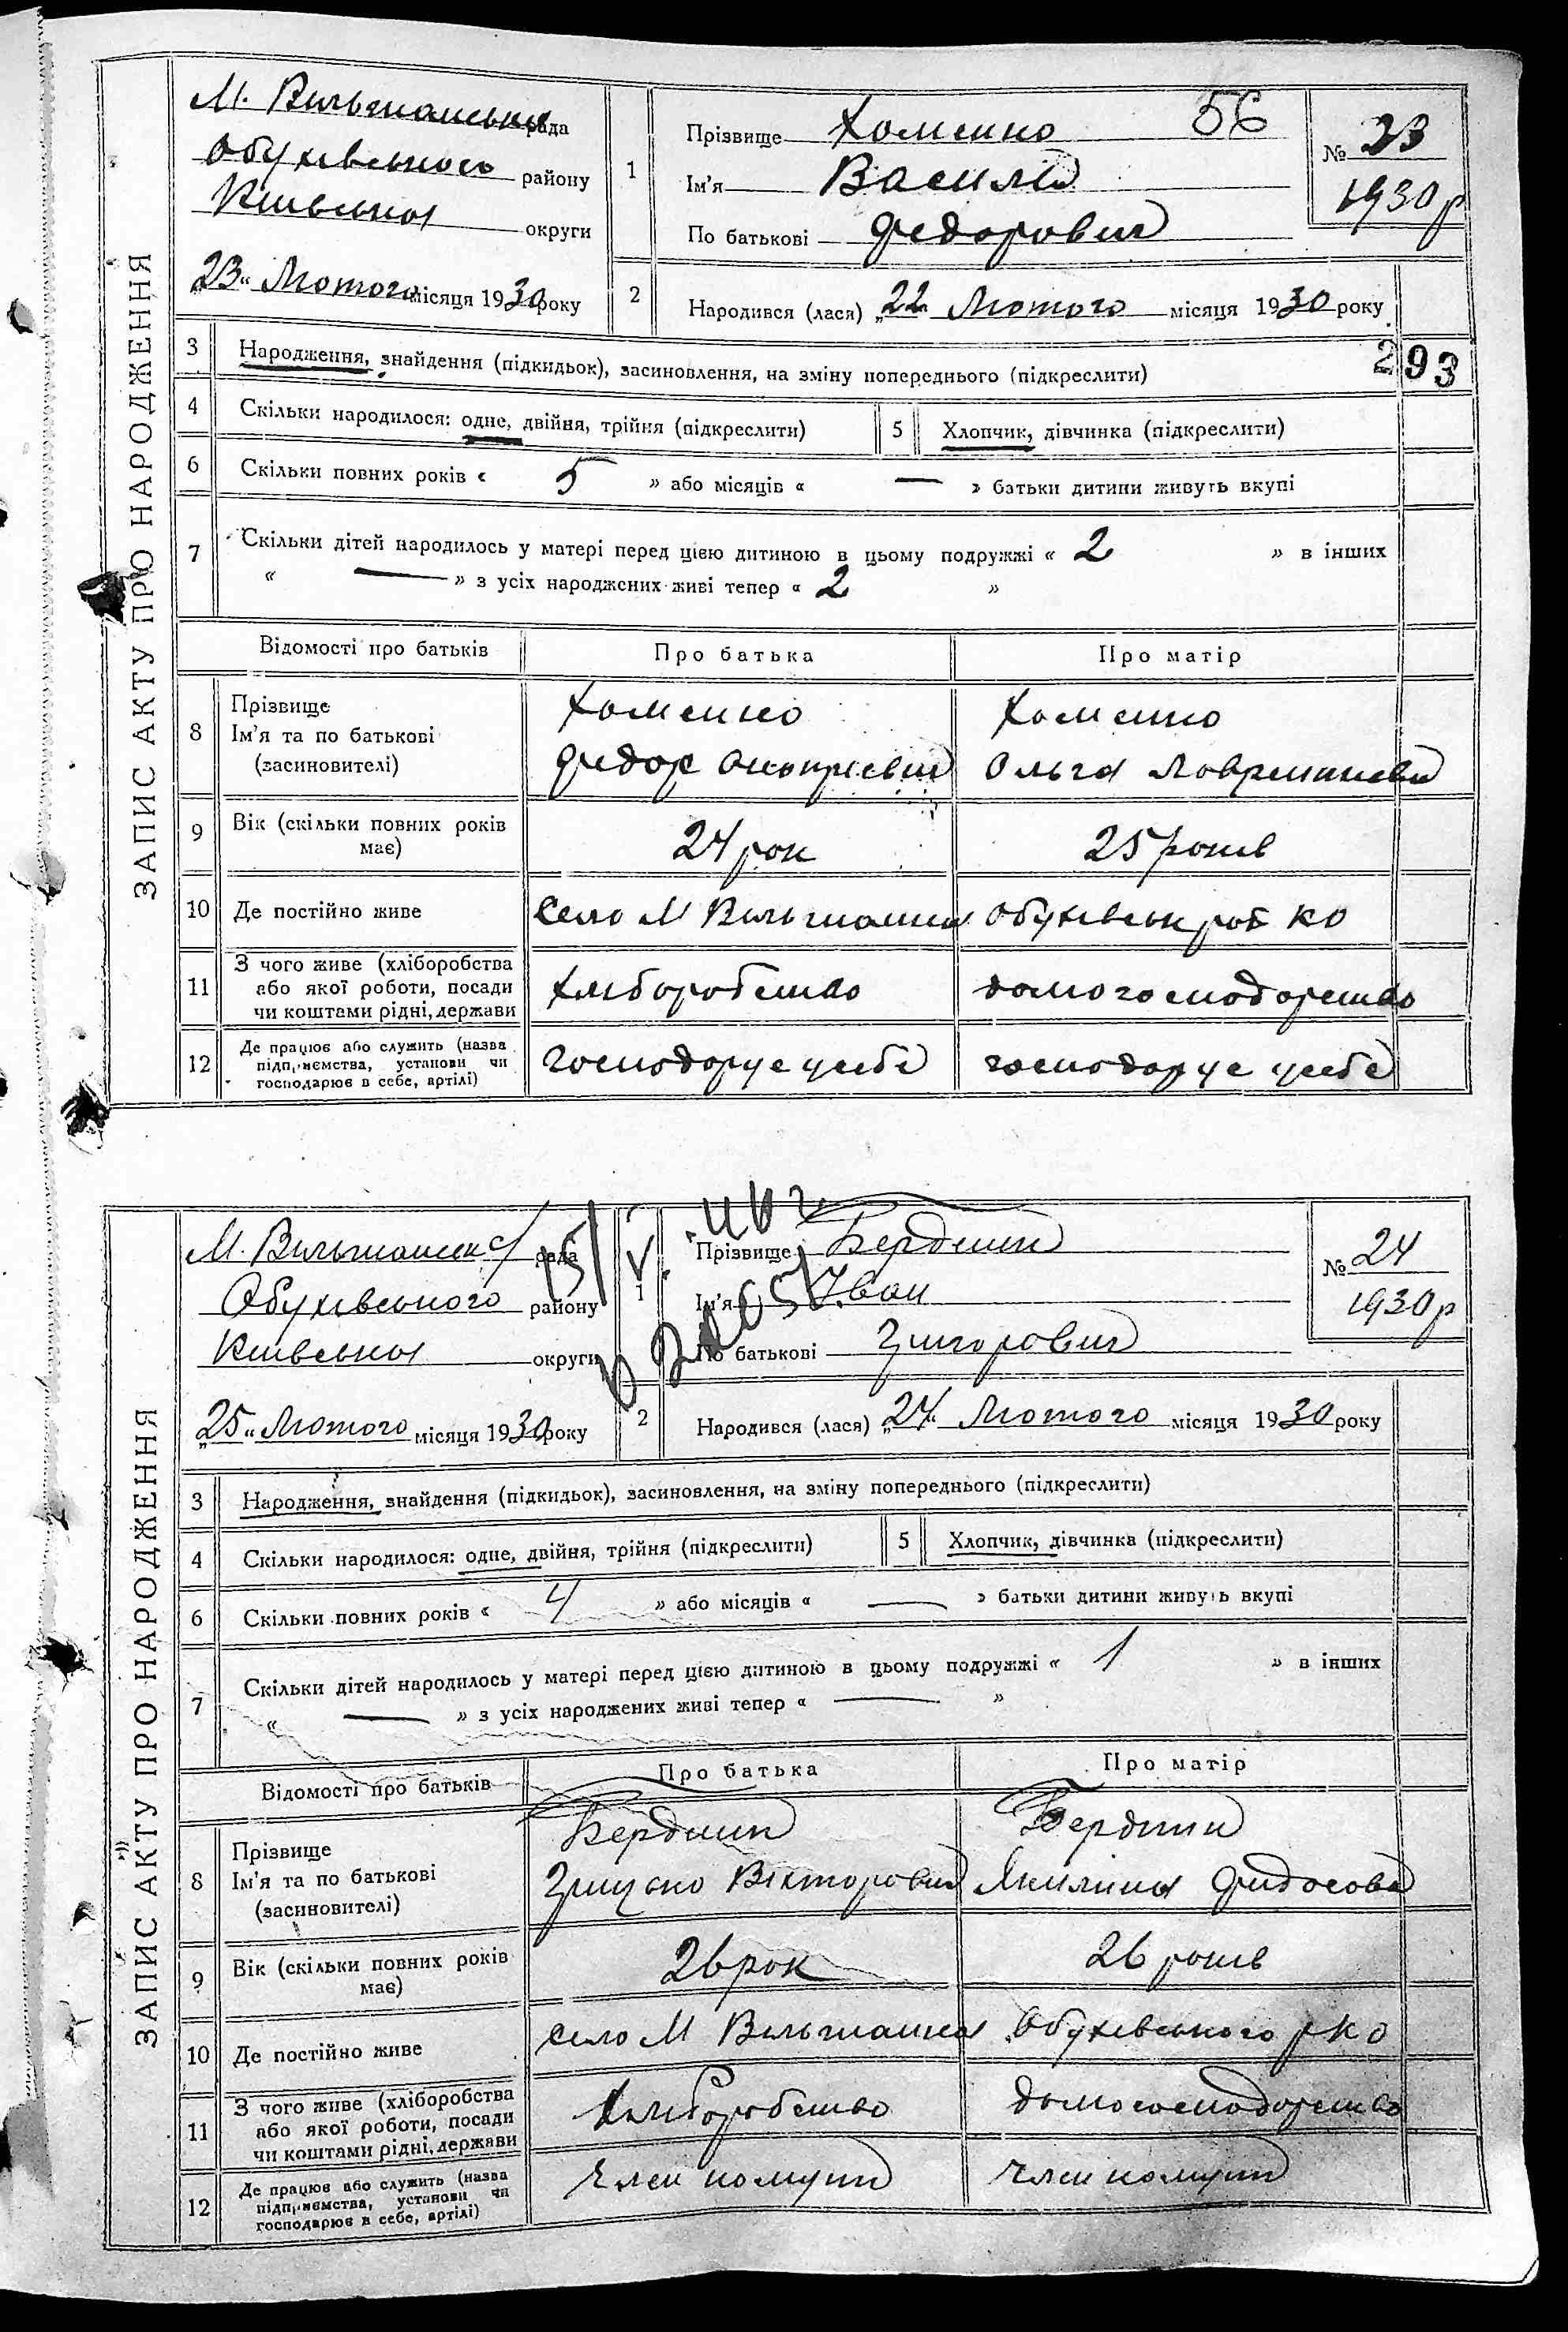 ЗАПИС АКТУ ПРО НАРОДЖЕННЯ
М. Вильшанська рада
Обухівського району
Київської округи
„23“ Лютого місяця 1930 року
1
Прізвище Хоменко 56
Ім'я Василь
По батькові Федорович
№ 23
1930 р
2
Народився (лася) „22“ Лютого місяця 1930 року
293
3 Народження, знайдення (підкидьок), засиновлення, на зміну попереднього (підкреслити)
4 Скільки народилося: одне, двійня, трійня (підкреслити) 5 Хлопчик, дівчинка (підкреслити)
6 Скільки повних років « 5 » або місяців « — » батьки дитини живуть вкупі
7 Скільки дітей народилось у матері перед цією дитиною в цьому подружжі « 2 » в інших
« — » з усіх народжених живі тепер « 2 »
Відомості про батьків Про батька Про матір
8 Прізвище
Ім'я та по батькові
(засиновителі)
Хоменко
Федор
Хоменко
Ольга
9 Вік (скільки повних років має) 24 рок 25 років
10 Де постійно живе село М Вильшанка Обухівськ КО
11 З чого живе (хліборобства
або якої роботи, посади
чи коштами рідні, держави
хліборобство домогосподарство
12 Де працює або служить (назва
підприємства, установи чи
господарює в себе, артілі)
господарує у себе господарує у себе
ЗАПИС АКТУ ПРО НАРОДЖЕННЯ
М. Вильшанськ рада
Обухівського району
Київської округи
„25“ Лютого місяця 1930 року
1
Прізвище Бердник
Ім'я Іван
По батькові Григорович
№ 24
1930 р
2
Народився (лася) „24“ Лютого місяця 1930 року
3 Народження, знайдення (підкидьок), засиновлення, на зміну попереднього (підкреслити)
4 Скільки народилося: одне, двійня, трійня (підкреслити) 5 Хлопчик, дівчинка (підкреслити)
6 Скільки повних років « 4 » або місяців « — » батьки дитини живуть вкупі
7 Скільки дітей народилось у матері перед цією дитиною в цьому подружжі « 1 » в інших
« — » з усіх народжених живі тепер « — »
Відомості про батьків Про батька Про матір
8 Прізвище
Ім'я та по батькові
(засиновителі)
Бердник
Грицько Вікторович
Бердник
Якилина
9 Вік (скільки повних років має) 26 рок 26 років
10 Де постійно живе село М Вильшанка Обухівського р КО
11 З чого живе (хліборобства
або якої роботи, посади
чи коштами рідні, держави
хліборобство домогосподарство
12 Де працює або служить (назва
підприємства, установи чи
господарює в себе, артілі)
член комуни член комуни